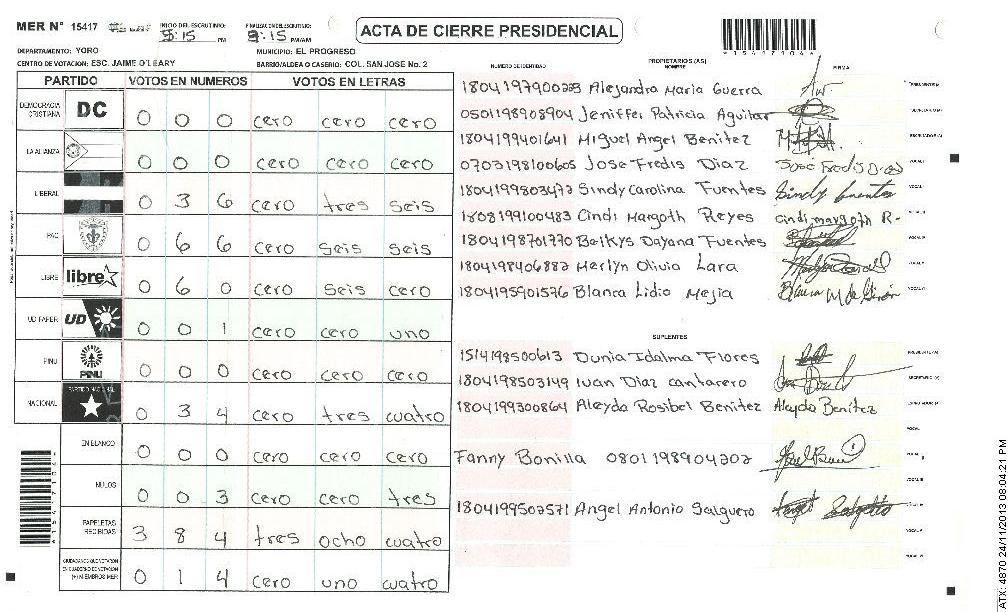 MER N° 15417
INICIO DEL ESCRUTINIO: 5:15 PM
FINALIZACION DEL ESCRUTINIO: 9:15 PM/AM
ACTA DE CIERRE PRESIDENCIAL
DEPARTAMENTO: YORO
MUNICIPIO: EL PROGRESO
CENTRO DE VOTACION: ESC. JAIME O'LEARY
BARRIO/ALDEA O CASERIO: COL. SAN JOSE No. 2
PARTIDO VOTOS EN NUMEROS VOTOS EN LETRAS
DEMOCRACIA CRISTIANA DC 0 0 0 cero cero cero
LA ALIANZA 0 0 0 cero cero cero
LIBERAL 0 3 6 cero tres seis
PAC 0 6 6 cero seis seis
LIBRE libre 0 6 0 cero seis cero
UD FAPER UD 0 0 1 cero cero uno
PINU PINU 0 0 0 cero cero cero
NACIONAL PARTIDO NACIONAL 0 3 4 cero tres cuatro
EN BLANCO 0 0 0 cero cero cero
NULOS 0 0 3 cero cero tres
PAPELETAS RECIBIDAS 3 8 4 tres ocho cuatro
CIUDADANOS QUE VOTARON EN CUADERNO DE VOTACION (+) MIEMBROS MER 0 1 4 cero uno cuatro
NUMERO DE IDENTIDAD PROPIETARIOS (AS) NOMBRE FIRMA
Alejandra Maria Guerra
0501198908904 Jeniffer Patricia Aguilar
1804199401641 Miguel Angel Benitez
0703198100605 Jose Fredis Diaz
1804199803477 Sindy Carolina Fuentes Sindy Fuentes
1808199100483 Cindi Margoth Reyes cindi margoth R-
1804198701770 Belkys Dayana Fuentes
1804198406887 Merlyn Olivia Lara
1804195901576 Blanca Lidia Mejia
SUPLENTES
1514198500613 Dunia Idalma Flores
1804198503149 Ivan Diaz cantarero
1804199300864 Aleyda Rosibel Benitez Aleyda Benitez
Fanny Bonilla 0801198904202
1804199507571 Angel Antonio Salguero
*15417104*
ATX: 4870 24/11/2013 08:04:21 PM